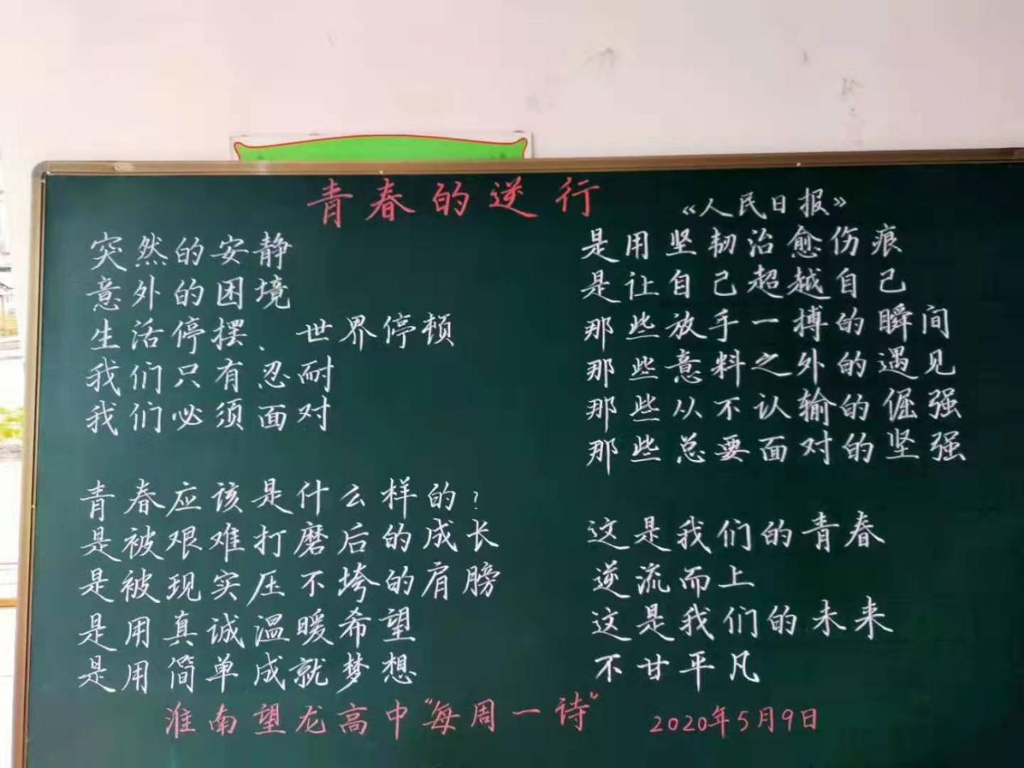 青春的逆行
《人民日报》
突然的安静
意外的困境
生活停摆、世界停顿
我们只有忍耐
我们必须面对
青春应该是什么样的？
是被艰难打磨后的成长
是被现实压不垮的肩膀
是用真诚温暖希望
是用简单成就梦想
是用坚韧治愈伤痕
是让自己超越自己
那些放手一搏的瞬间
那些意料之外的遇见
那些从不认输的倔强
那些总要面对的坚强
这是我们的青春
逆流而上
这是我们的未来
不甘平凡
淮南望龙高中“每周一诗”
2020年5月9日